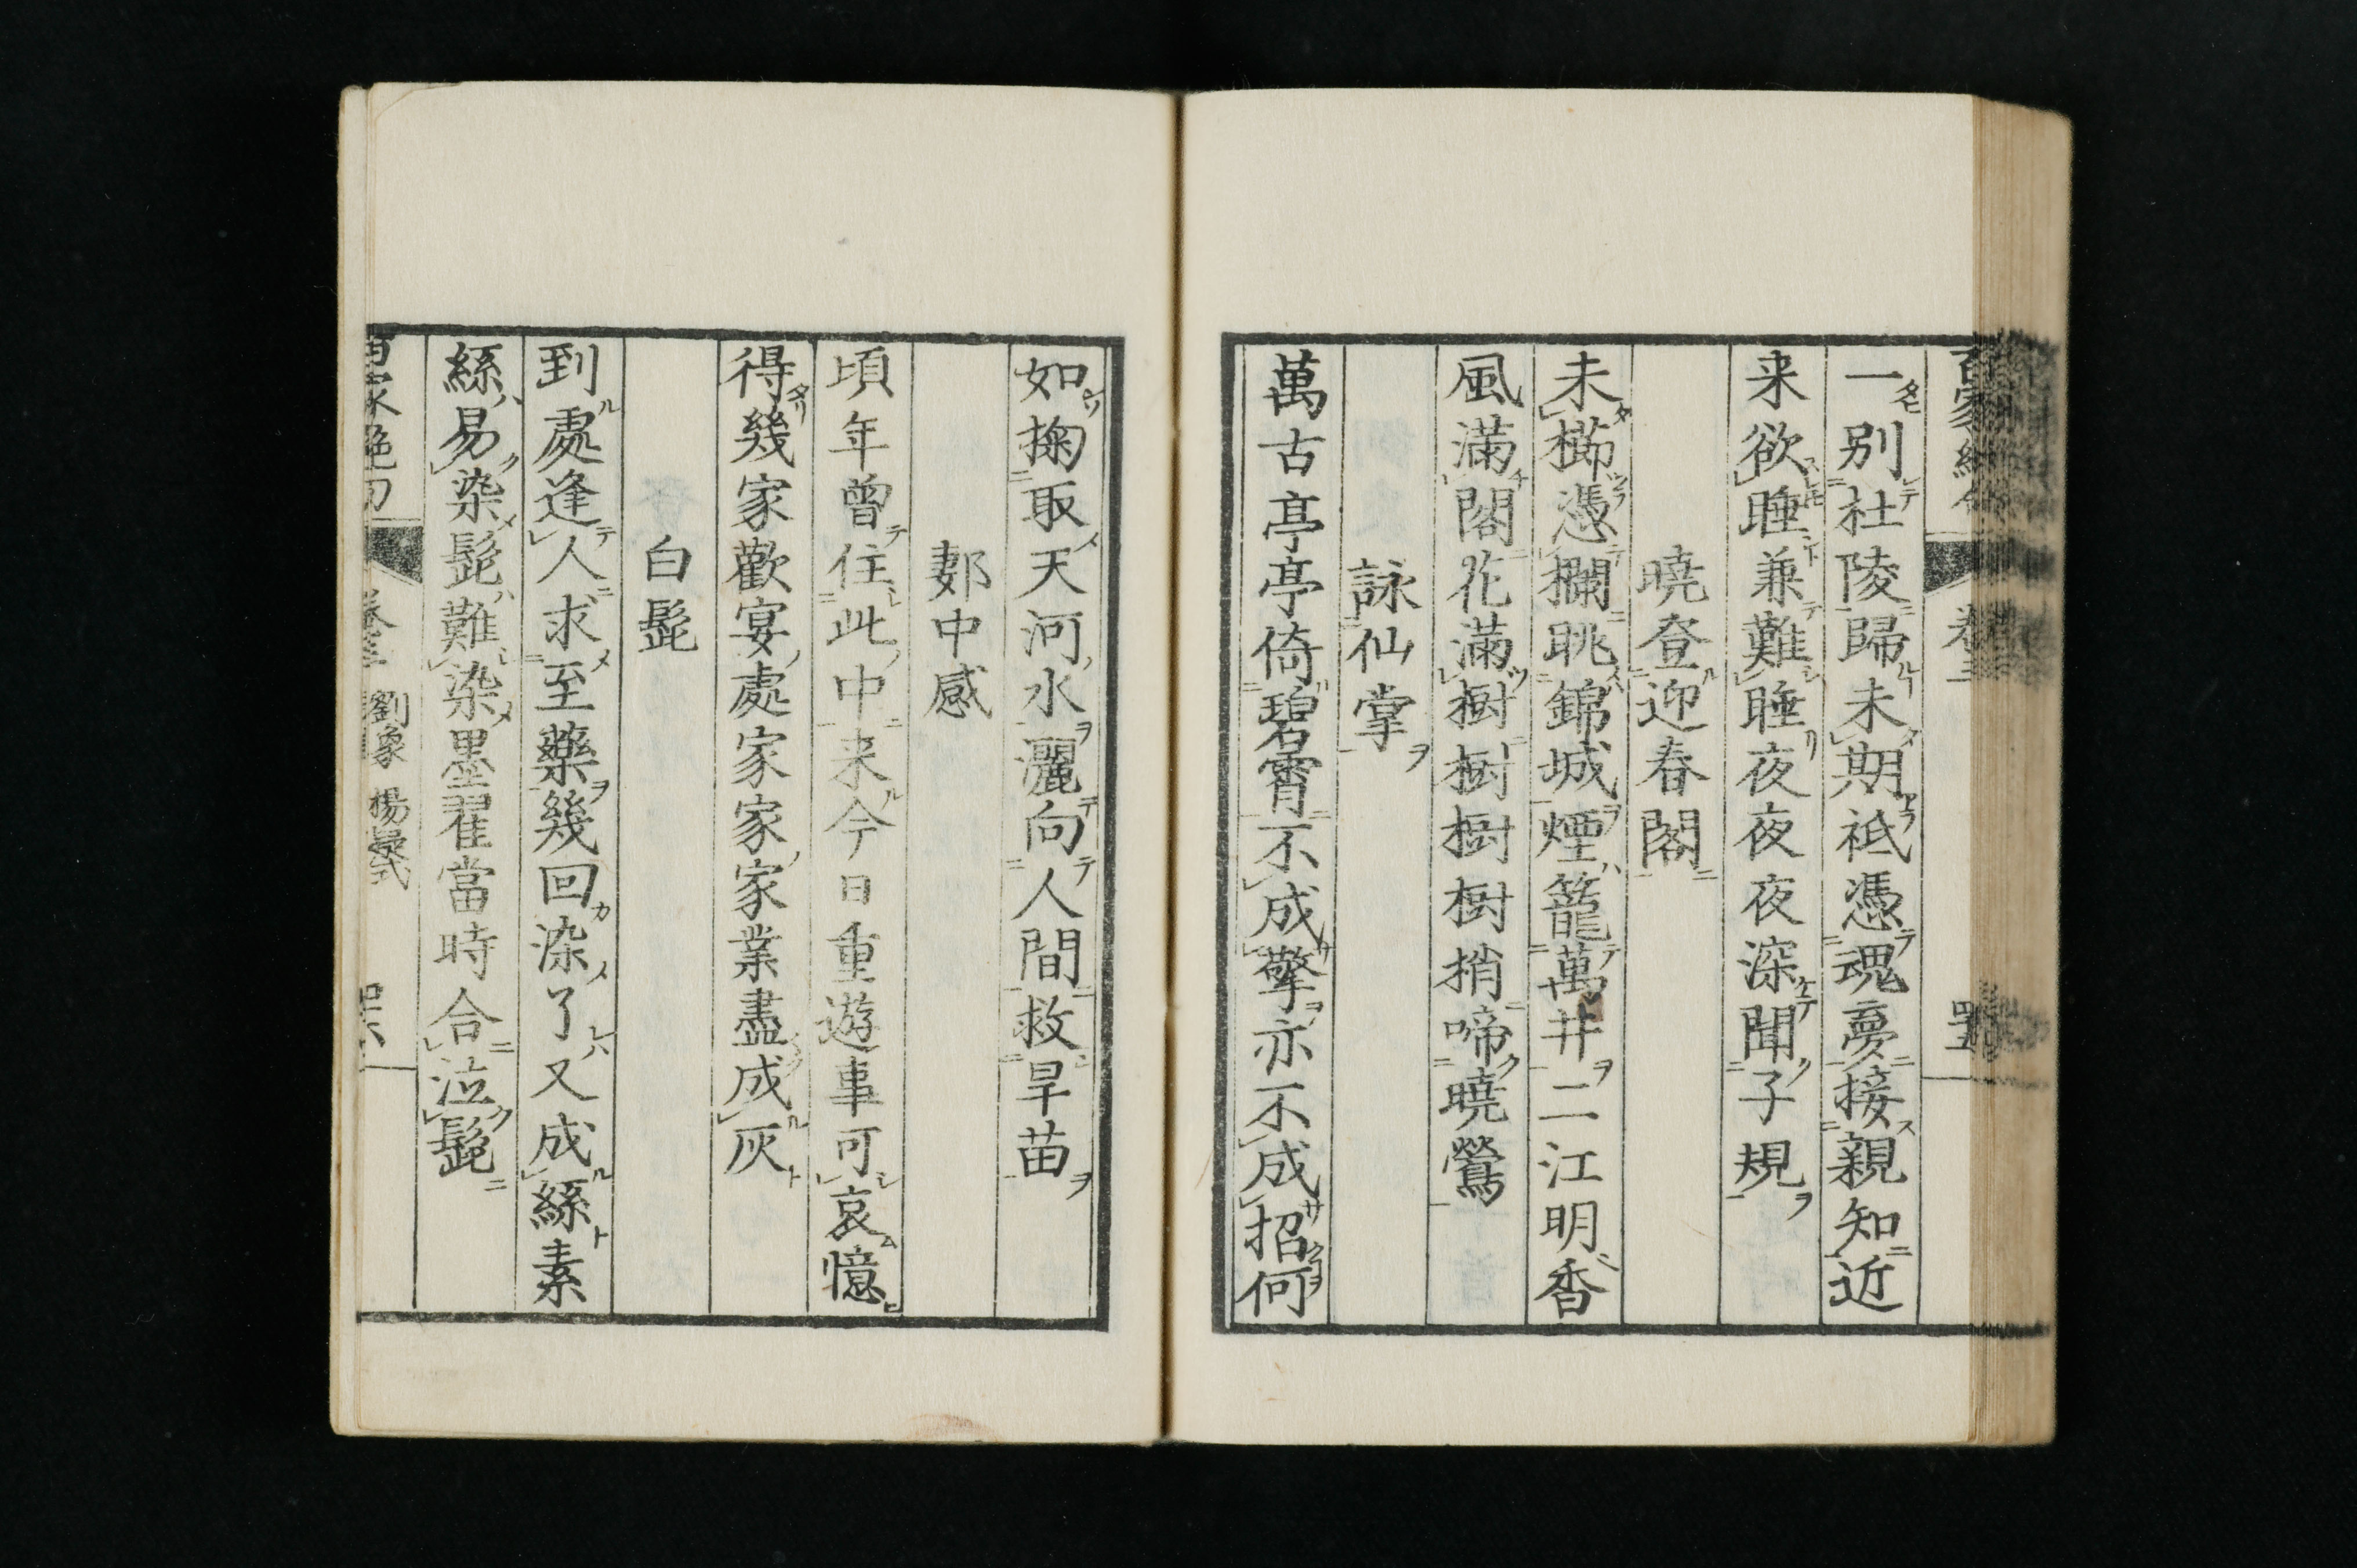 一別杜陵歸未期祗憑魂夢接親知近
来欲睡兼難睡夜夜夜深聞子規
曉登迎春閣
未櫛憑欄眺錦城煙籠萬井二江明香
風滿閣花滿樹樹樹樹梢啼曉鶯
詠仙掌
萬古亭亭倚碧霄不成擎亦不成招何
如掬取天河水灑向人間救旱苗
鄴中感
頃年曾住此中来今日重遊事可哀憶
得幾家歡宴處家家家業盡成灰
白髭
到處逢人求至藥幾回染了又成絲素
絲易染髭難染墨翟當時合泣髭
百家絶句 卷三 劉象 楊凝式